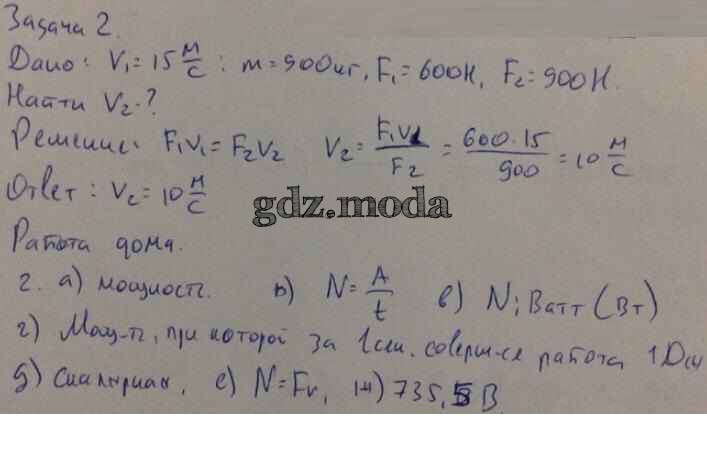 Задача 2.
Дано: V₁ = 15 м/с; m = 900 кг, F₁ = 600 Н, F₂ = 900 Н.
Найти V₂ - ?
Решение: F₁V₁ = F₂V₂ V₂ = F₁V₁/F₂ = 600·15/900 = 10 м/с
Ответ: V₂ = 10 м/с
gdz.moda
Работа дома.
2. а) мощность. в) N = A/t в) N; Ватт (Вт)
г) Мощ-ть, при которой за 1 сек. соверш-ся работа 1 Дж
д) Скалярная, е) N = Fv, ж) 735,5 В